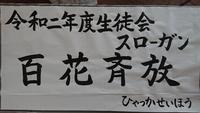 令和二年度生徒会
スローガン
百花斉放
ひゃっかせいほう